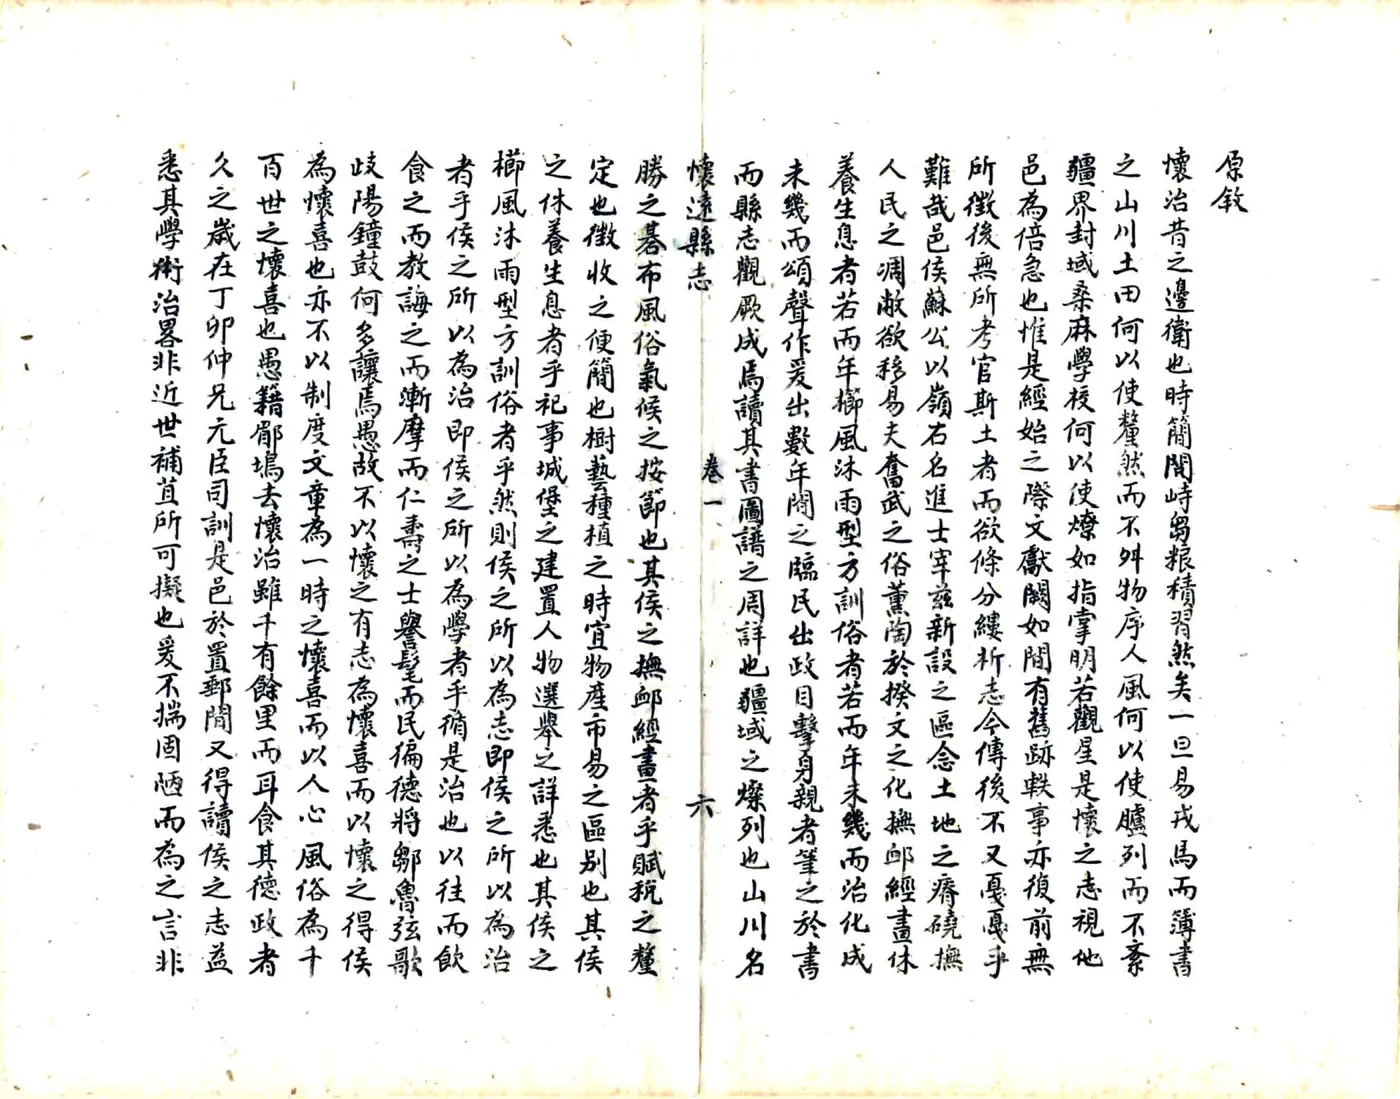 原敘
懷治昔之邊衛也時簡閱峙芻粮積習然矣一旦易戎馬而簿書
之山川土田何以使釐然而不舛物序人風何以使臚列而不紊
疆界封域桑麻學校何以使燎如指掌明若觀星是懷之志視他
邑為倍急也惟是經始之際文獻闕如間有舊跡軼事亦復前無
所徵後無所考官斯土者而欲條分縷析志今傳後不又戞戞乎
難哉邑侯蘇公以嶺右名進士宰茲新設之區念土地之瘠磽撫
人民之凋敝欲移易夫奮武之俗薰陶於揆文之化撫卹經畫休
養生息者若而年櫛風沐雨型方訓俗者若而年未幾而治化成
未幾而頌聲作爰出數年閱之臨民出政目擊身親者筆之於書
而縣志觀厥成焉讀其書圖譜之周詳也疆域之燦列也山川名
懷遠縣志
卷一
六
勝之碁布風俗氣候之按節也其侯之撫卹經畫者乎賦稅之釐
定也徵收之便簡也樹藝種植之時宜物產市易之區別也其侯
之休養生息者乎祀事城堡之建置人物選舉之詳悉也其侯之
櫛風沐雨型方訓俗者乎然則侯之所以為志即侯之所以為治
者乎侯之所以為治即侯之所以為學者乎循是治也以往而飲
食之而教誨之而漸摩而仁壽之士譽髦而民徧德將鄒魯弦歌
歧陽鐘鼓何多讓焉愚故不以懷之有志為懷喜而以懷之得侯
為懷喜也亦不以制度文章為一時之懷喜而以人心風俗為千
百世之懷喜也愚籍郿塢去懷治雖千有餘里而耳食其德政者
久之歲在丁卯仲兄元臣司訓是邑於置郵間又得讀侯之志益
悉其學術治畧非近世補苴所可擬也爰不揣固陋而為之言非